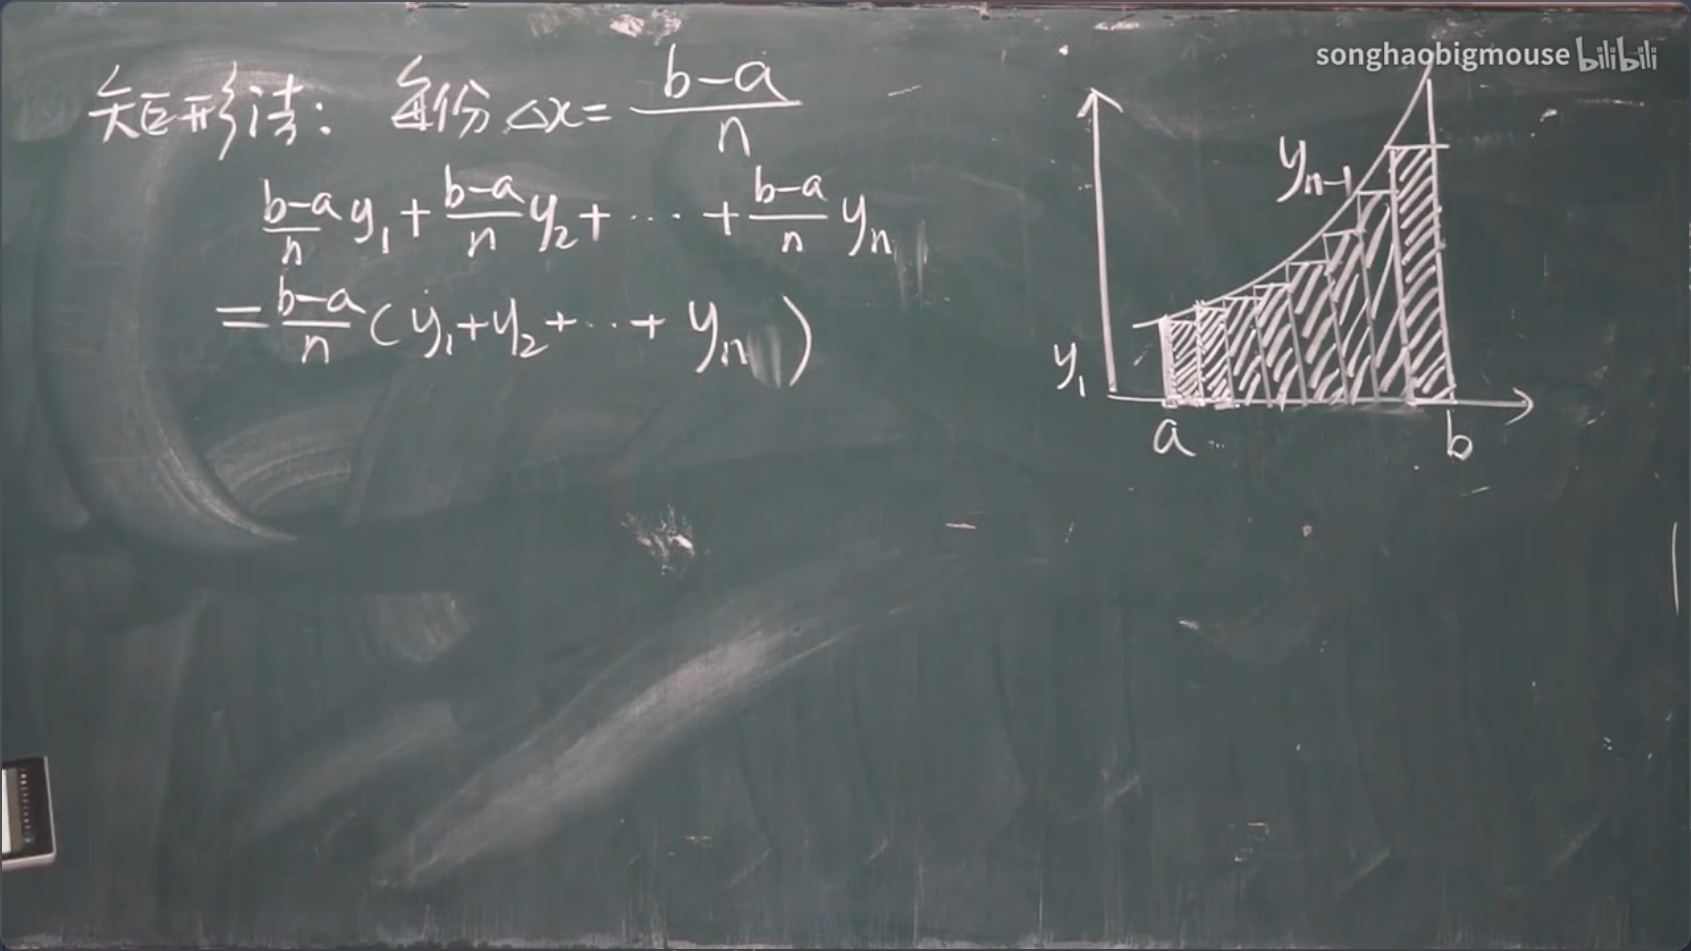 songhaobigmouse bilibili
矩形法: 每份 Δx = \frac{b-a}{n}
\frac{b-a}{n} y_1 + \frac{b-a}{n} y_2 + ⋯ + \frac{b-a}{n} y_n
= \frac{b-a}{n} ( y_1 + y_2 + ⋯ + y_n )
y_{n-1}
y_1
a
b